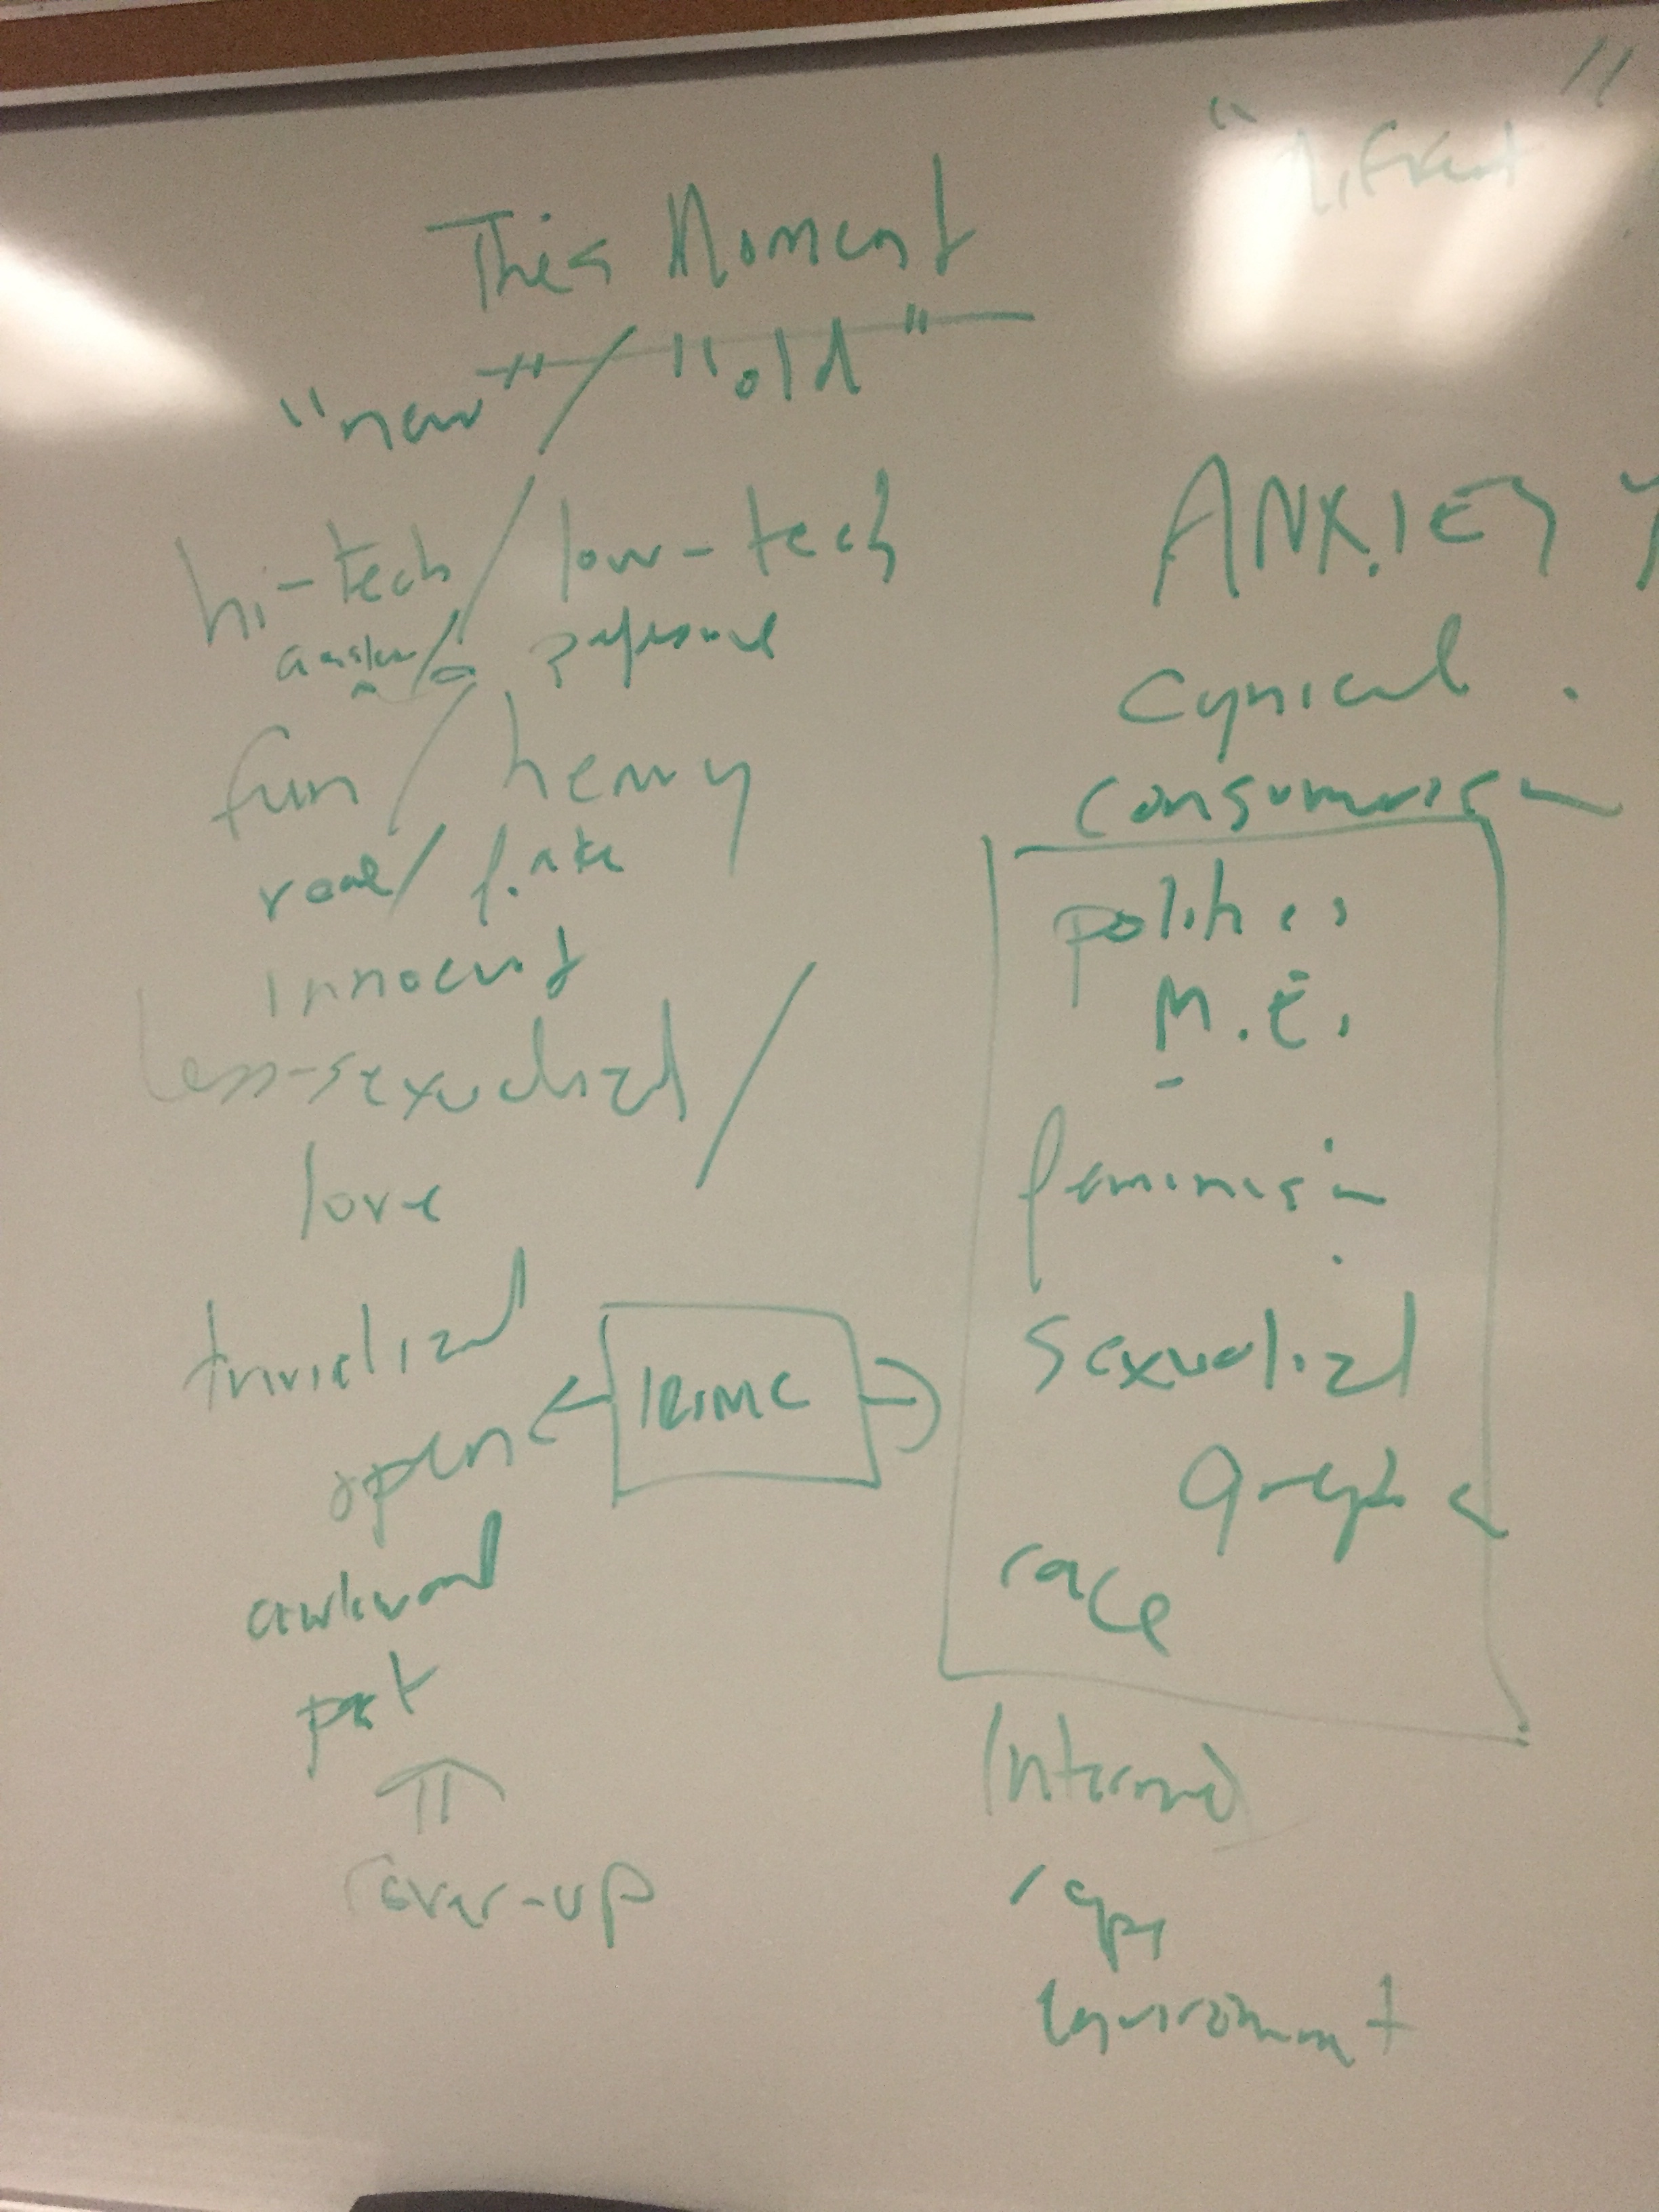 This Moment
"new" / "old"
hi-tech / low-tech
fun / heavy
real / fake
innocent
less-sexualized /
love
trivialized
open
awkward
past
cover-up
ANXIETY
cynical
consumerism
politics
M.E.
feminism
sexualized
graphic
race
Internet
rape
environment